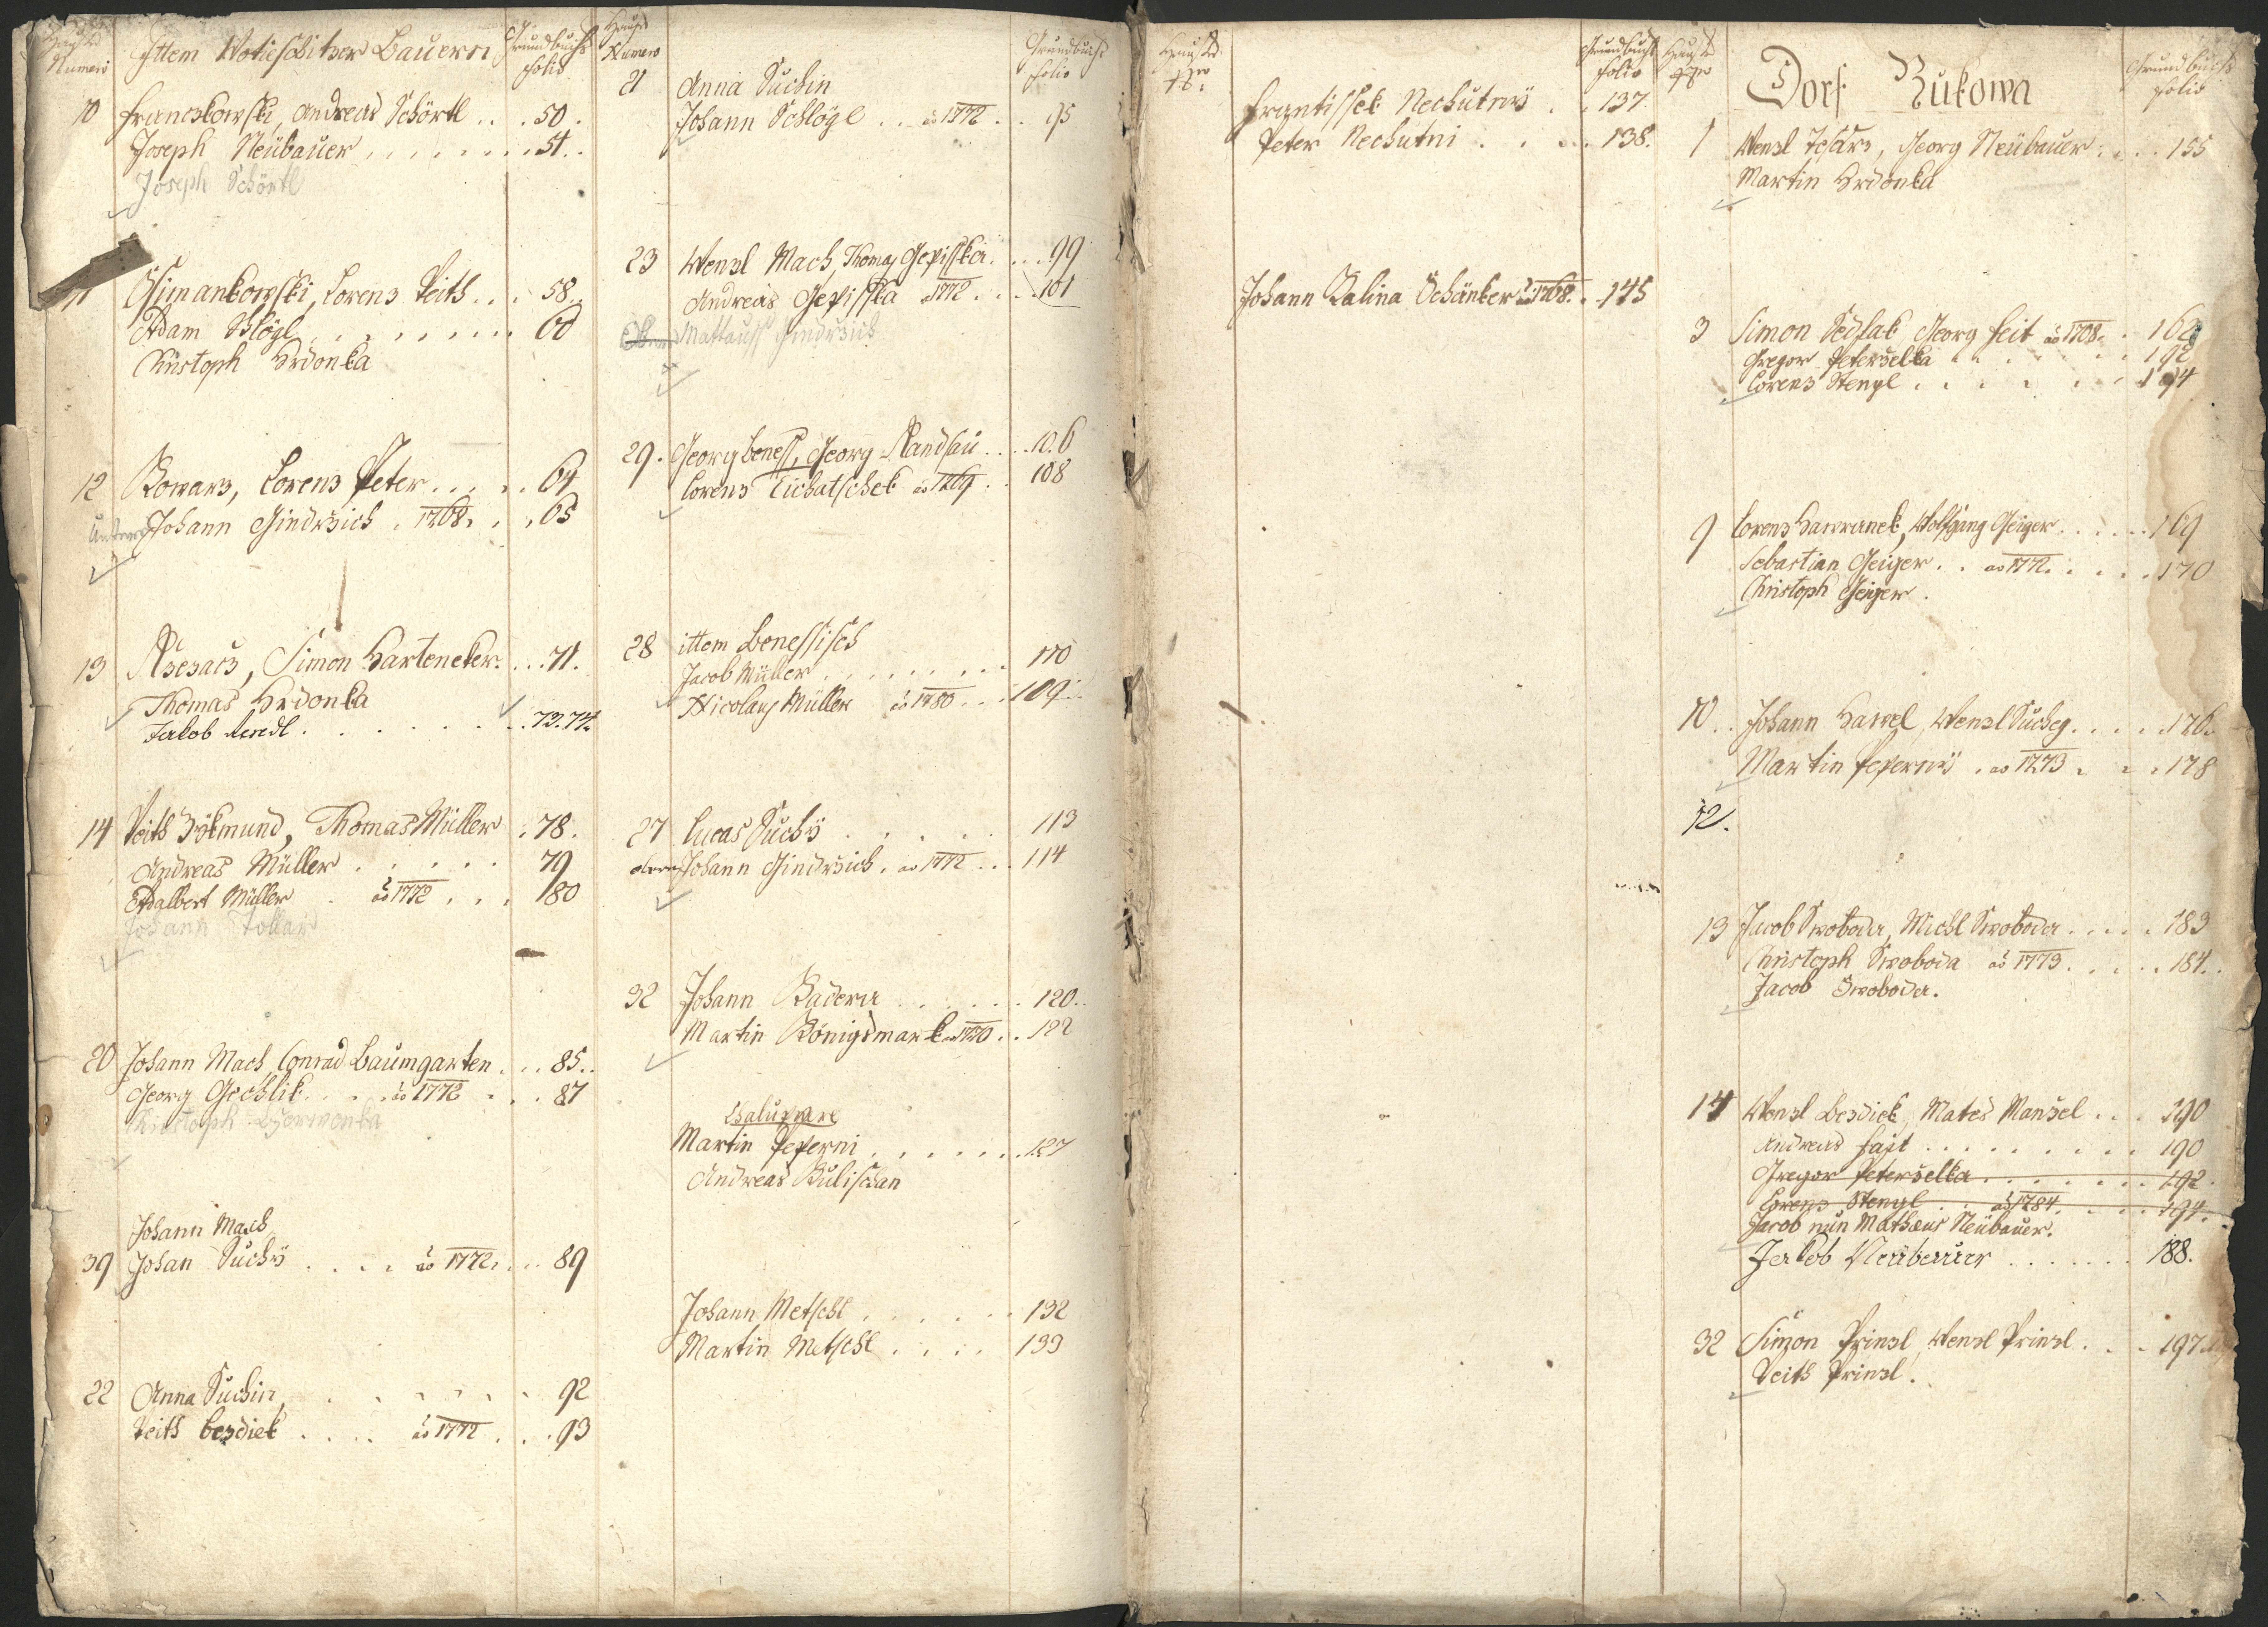 Hauss Numero
Ittem Wotieschitzer Bauern
Grundbuchs folio
10 Franczkowski, Andreas Schörtl . . . 50.
Joseph Neübauer . . . . . . . 51.
Joseph Schörtl
11 Gsimankowski, Lorenz Veith . . . 58.
Adam Schlögl . . . . . . . 60
Christoph Hrdonka
12 Kowarz, Lorenz Peter . . . . 64
Johann Gindrzich . 1768. . . 65
13 Simon Harteneker . . . 71.
Thomas Hrdonka
Jakob . . . . . . 73. 74.
14 Veith Zikmund, Thomas Müller . 78.
Andreas Müller . . . . . 79
Adalbert Müller . aõ 1772 . . . 80
Johann Tollar
20 Johann Mach, Conrad Baumgarten . . . 85..
Georg Gechlik . . . aõ 1772 . . . 87
Christoph
Johann Mach
39 Johan Suchÿ . . . . aõ 1772. . . . 89
22 Anna Suchin, . . . . . 92
Veith Bezdiek . . . . aõ 1772 . . . 93
Hauss Numero
Grundbuchs folio
21 Anna Suchin
Johann Schlögl . . aõ 1772 . . . 95
23 Wenzl Mach, Thomas Gepisska . . . . 99
Andreas Gepisska 1772 . . . . 101
Mattauss Gindrzich
29. Georg Beness, Georg Mandsau . . . . 106
Lorenz Tichatschek aõ 1769 . . 108
28 ittem Benessisch
Jacob Müller . . . . . . . 110
Nicolaus Müller aõ 1780 . . . 109
27 Lucas Suchÿ . . . . . 113
Johann Gindrzich . aõ 1772 . . . 114
32 Johann Badera . . . . . . 120..
Martin Königsmark aõ 1770 . . . 122
Chaluppare
Martin Peperni . . . . . . . 127
Andreas Kulischan
Johann Metschl . . . . . . 132
Martin Metschl . . . . 133
Hauss Nro
Grundbuchs folio
Frantissek Nechutnÿ . . 137
Peter Nechutni . . . . 138.
Johann Kalina Schänker aõ 1768. . 145
Hauss Nro
Dorf Kukowa
Grundbuchs folio
1 Wenzl Tesarz, Georg Neübauer . . . . 155
Martin Hrdonka
3 Simon Sedlak, Georg Feit aõ 1768. . 162
Gregor Peterzelka . . . . . . 192
Lorenz Stengl . . . . . . . 194
9 Lorenz Hawranek, Wolfgang Geiger . . . . . . 169
Sebastian Geiger . . aõ 1772. . . . . 170
Christoph Geiger .
10 . . Johann Hawel, Wenzl Sucheg . . . . . 176.
Martin Pepernÿ . aõ 1773 . . . 178
12.
13 Jacob Swoboda, Michl Swoboda . . . . . 183
Christoph Swoboda aõ 1773. . . . . 184. .
Jacob Swoboda.
14 Wenzl Bezdiek, Mates Manzel . . . 190
Andreas Fajt . . . . . . . . . 190
Gregor Peterzelka . . . . . . . 192.
Lorenz Stengl . . aõ 1784. . . . . 194.
Jacob nun Matheus Neübauer.
Jakob Neübauer . . . . . . . 188.
32 Simon Prinzl, Wenzl Prinzl . . . 197
Veith Prinzl.